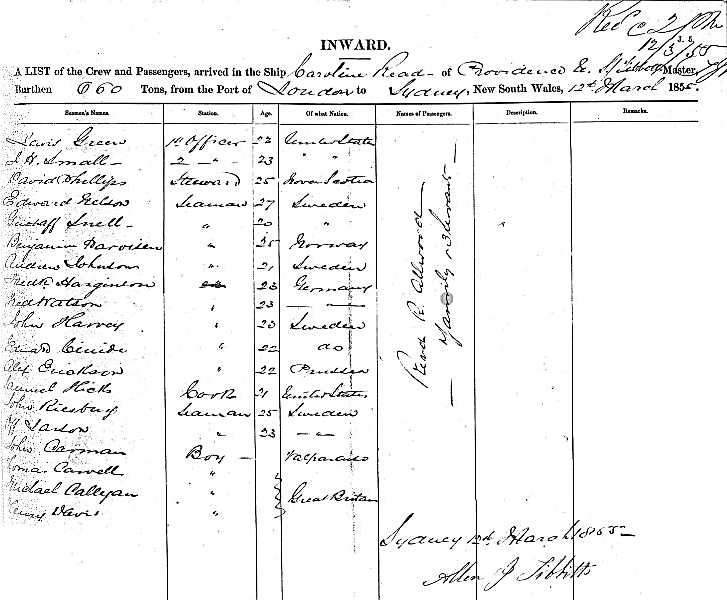 Recd 2 pm
12/3/55
INWARD.
A LIST of the Crew and Passengers, arrived in the Ship Caroline Read - of Providence Master,
Burthen 660 Tons, from the Port of London to Sydney, New South Wales, 12th March 1855.
Seamen's Names. Station. Age. Of what Nation. Names of Passengers. Description. Remarks.
Lewis Green 1st Officer 22 United States
J. H. Small - 2 - " - 23 " "
David Phillips Steward 25 Nova Scotia
Edward Nelson Seaman 27 Sweden
Gustaff Snell - " 20 "
Benjamin " 25 Norway
Andrew Johnson " 21 Sweden
Fredk Harginson 23 Germany
Watson " 23 — " —
John Harvey " 23 Sweden
" 22 do
Alex Erickson " 22 Prussia
Samuel Hicks Cook 21 United States
John Riesbury Seaman 25 Sweden
" 23 - " -
John Carman Boy - Valparaiso
Carvell "
Michael Callyan " Great Britain
Henry Davis "
Revd R. Allwood
— Family & Servant —
Sydney 12th March 1855 -
Allen J Tibbitts